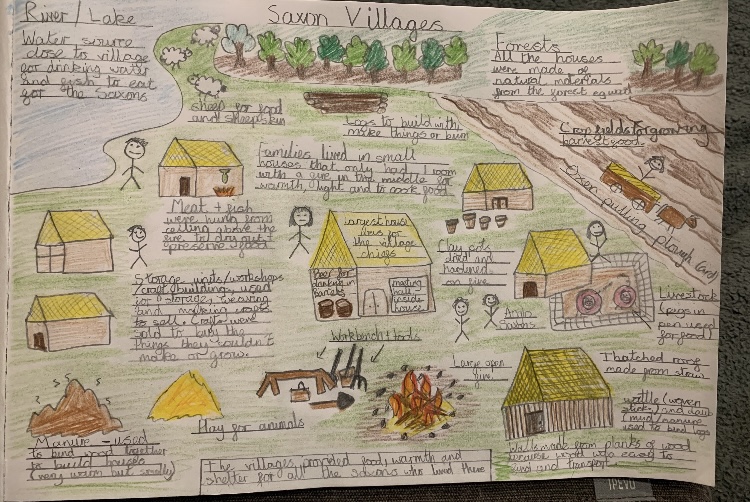 River/Lake
Water source
close to village
for drinking water
and fish to eat
for the Saxons
Saxon Villages
Forests
All the houses
were made of
natural materials
from the forest
sheep for food
and sheepskin
Logs to build with,
make things or burn
Crop fields for growing
harvest food.
Oxen pulling plough
Families lived in small
houses that only had 1 room
with a fire in the middle for
warmth, light and to cook food.
Meat + fish
were hung from
ceiling above the
fire to dry out +
preserve food
largest house
was for
the village
chiefs
Beer for
drinking in
barrels
meeting
hall
inside
house
Clay pots
dried and
hardened
on fire
Anglo
Saxons
Livestock
(pigs in
pen used
for food)
Storage units/workshops
/craft buildings used
for storage, weaving
and making crops
to sell. Crafts were
sold to buy the
things they couldn't
make or grow.
Workbench + tools
Large open
fire
Thatched roof
made from straw
wattle (woven
sticks) and daub
(mud/manure
used to bind logs
Walls made from planks of wood
because wood was easy to
find and transport
Manure - used
to bind wood together
to build houses
(very warm but smelly)
Hay for animals
The villages provided food, warmth and
shelter for all the Saxons who lived there
IPEVO